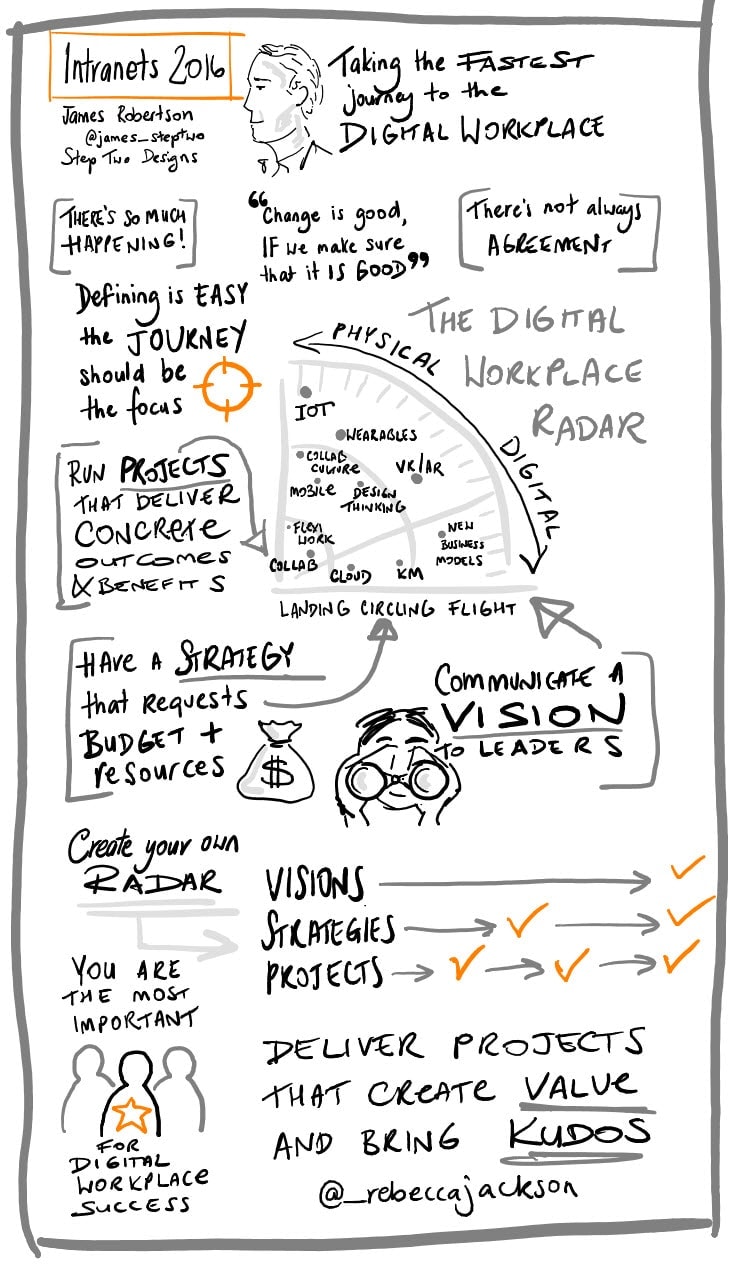 Intranets 2016
James Robertson
@james_steptwo
Step Two Designs
Taking the FASTEST
journey to the
DIGITAL WORKPLACE
THERE'S SO MUCH
HAPPENING!
“Change is good,
IF we make sure
that it IS GOOD”
There's not always
AGREEMENT
Defining is EASY
the JOURNEY
should be
the focus
THE DIGITAL
WORKPLACE
RADAR
PHYSICAL
DIGITAL
IOT
WEARABLES
COLLAB
CULTURE
VR/AR
MOBILE
DESIGN
THINKING
FLEXI
WORK
NEW
BUSINESS
MODELS
COLLAB
CLOUD
KM
LANDING CIRCLING FLIGHT
RUN PROJECTS
THAT DELIVER
CONCRETE
OUTCOMES
& BENEFITS
HAVE A STRATEGY
that requests
BUDGET +
resources
$
COMMUNICATE A
VISION
TO LEADERS
Create your own
RADAR
VISIONS
STRATEGIES
PROJECTS
YOU ARE
THE MOST
IMPORTANT
FOR
DIGITAL
WORKPLACE
SUCCESS
DELIVER PROJECTS
THAT CREATE VALUE
AND BRING KUDOS
@_rebeccajackson